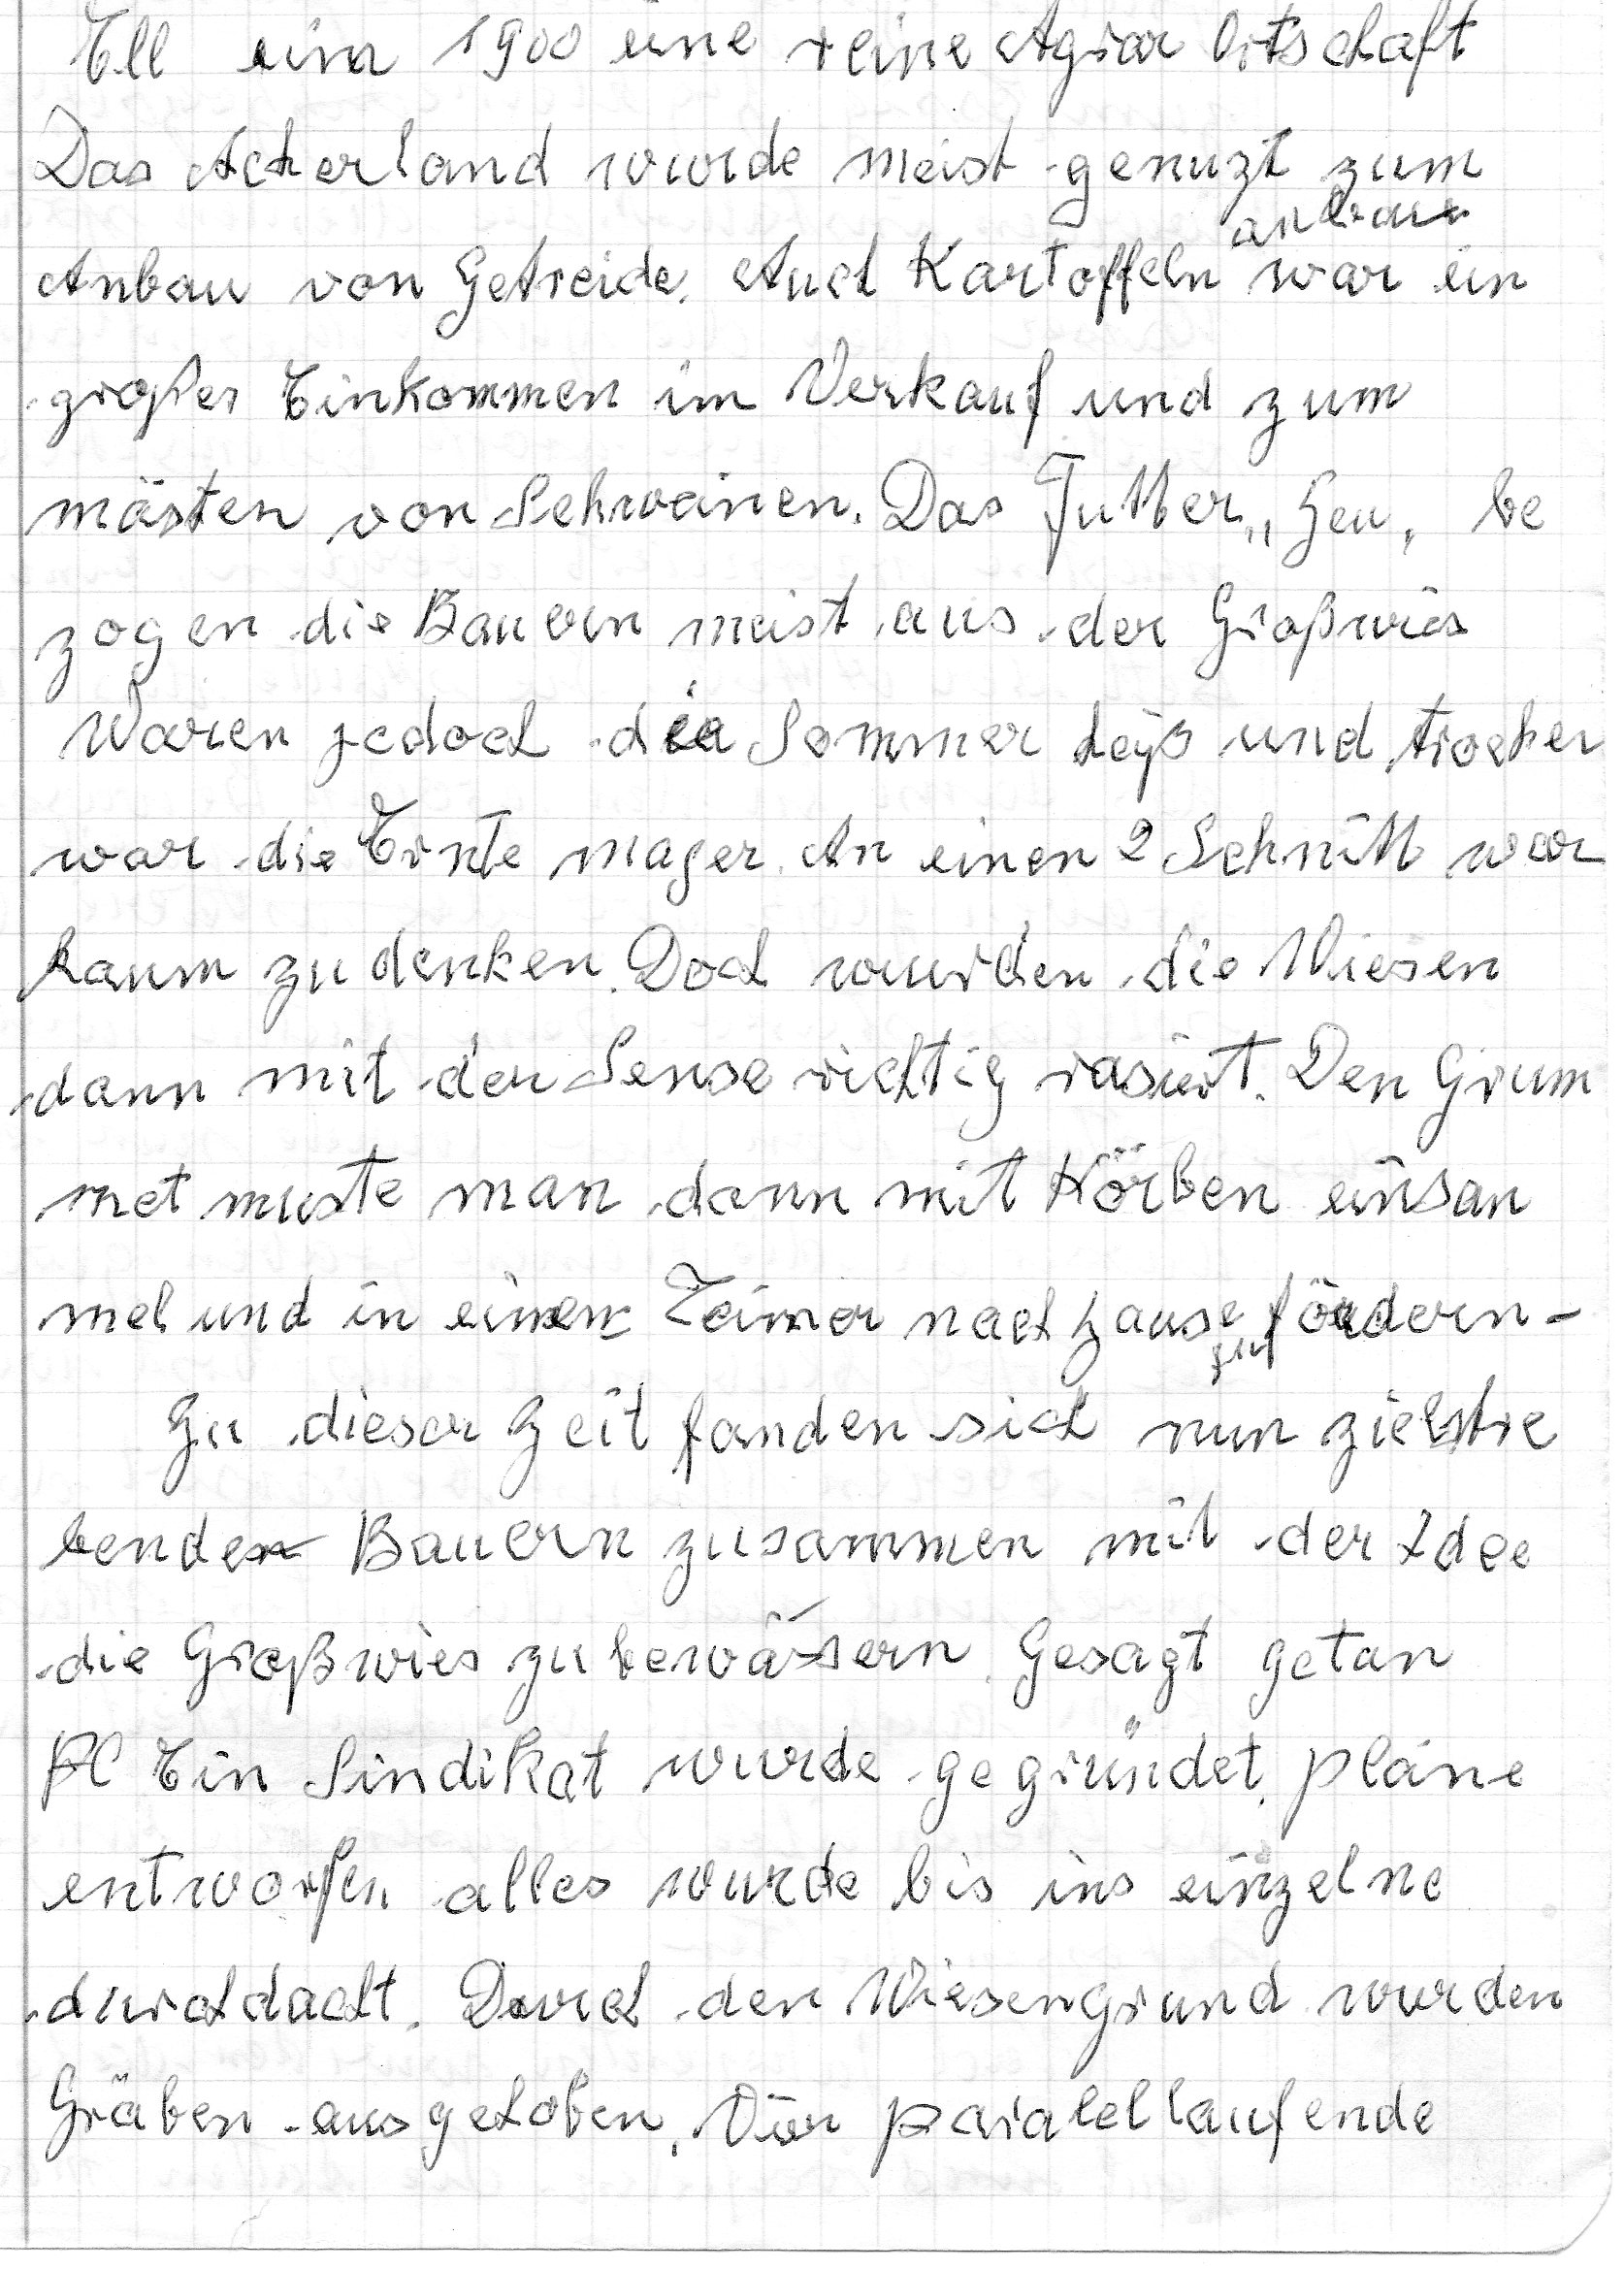 Ell um 1900 eine reine Agrar Ortschaft
Das Ackerland wurde meist genuzt zum
anbau
Anbau von Getreide. Auch Kartoffeln war ein
großer Einkommen im Verkauf und zum
mästen von Schweinen. Das Futter „ Heu, be
zogen die Bauern meist aus der Großwies
Waren jedoch die Sommer heiß und trocken
war die Ernte mager. An einen 2 Schnitt war
kaum zu denken. Doch wurden die Wiesen
dann mit der Sense richtig rasiert. Den Grum
met muste man dann mit Körben einsam
mel und in einem nach hause zu fördern-
Zu dieser Zeit fanden sich nun zielstre
bende Bauern zusammen mit der Idee
die Großwies zu bewässern. Gesagt getan
Ein Sindikat wurde gegründet. Pläne
entworfen alles wurde bis ins einzelne
durchdacht. Durch den Wiesengrund wurden
Gräben ausgehoben. Vier paralellaufende